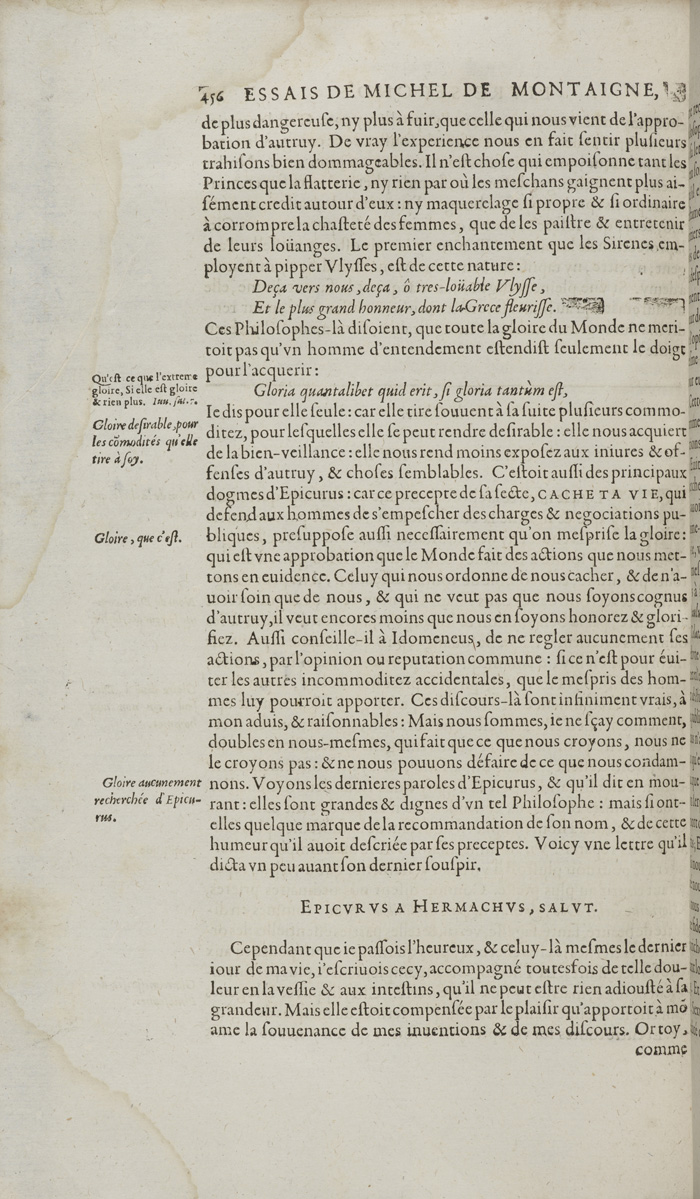 456 ESSAIS DE MICHEL DE MONTAIGNE,
de plus dangereuſe, ny plus à fuir, que celle qui nous vient de l'appro-
bation d'autruy. De vray l'experience nous en fait ſentir pluſieurs
trahiſons bien dommageables. Il n'eſt choſe qui empoiſonne tant les
Princes que la flatterie, ny rien par où les meſchans gaignent plus ai-
ſément credit autour d'eux : ny maquerelage ſi propre & ſi ordinaire
à corrompre la chaſteté des femmes, que de les paiſtre & entretenir
de leurs loüanges. Le premier enchantement que les Sirenes em-
ployent à pipper Vlyſſes, eſt de cette nature :
Deça vers nous, deça, ô tres-loüable Vlyſſe,
Et le plus grand honneur, dont la Grece fleuriſſe.
Ces Philoſophes-là diſoient, que toute la gloire du Monde ne meri-
toit pas qu'vn homme d'entendement eſtendiſt ſeulement le doigt
pour l'acquerir :
Qu'eſt ce que l'extreme
gloire, Si elle eſt gloire
& rien plus. Iuu. ſat. 7.
Gloria quantalibet quid erit, ſi gloria tantùm eſt,
Gloire deſirable, pour
les cōmodités qu'elle
tire à ſoy.
Ie dis pour elle ſeule : car elle tire ſouuent à ſa ſuite pluſieurs commo-
ditez, pour leſquelles elle ſe peut rendre deſirable : elle nous acquiert
de la bien-veillance : elle nous rend moins expoſez aux iniures & of-
fenſes d'autruy, & choſes ſemblables. C'eſtoit auſſi des principaux
dogmes d'Epicurus : car ce precepte de ſa ſecte, CACHE TA VIE, qui
defend aux hommes de s'empeſcher des charges & negociations pu-
Gloire, que c'eſt.
bliques, preſuppoſe auſſi neceſſairement qu'on meſpriſe la gloire :
qui eſt vne approbation que le Monde fait des actions que nous met-
tons en euidence. Celuy qui nous ordonne de nous cacher, & de n'a-
uoir ſoin que de nous, & qui ne veut pas que nous ſoyons cognus
d'autruy, il veut encores moins que nous en ſoyons honorez & glori-
fiez. Auſſi conſeille-il à Idomeneus, de ne regler aucunement ſes
actions, par l'opinion ou reputation commune : ſi ce n'eſt pour éui-
ter les autres incommoditez accidentales, que le meſpris des hom-
mes luy pourroit apporter. Ces diſcours-là ſont infiniment vrais, à
mon aduis, & raiſonnables : Mais nous ſommes, ie ne ſçay comment,
doubles en nous-meſmes, qui fait que ce que nous croyons, nous ne
le croyons pas : & ne nous pouuons défaire de ce que nous condam-
Gloire aucunement
recherchée d'Epicu-
rus.
nons. Voyons les dernieres paroles d'Epicurus, & qu'il dit en mou-
rant : elles ſont grandes & dignes d'vn tel Philoſophe : mais ſi ont-
elles quelque marque de la recommandation de ſon nom, & de cette
humeur qu'il auoit deſcriée par ſes preceptes. Voicy vne lettre qu'il
dicta vn peu auant ſon dernier ſouſpir.
EPICVRVS A HERMACHVS, SALVT.
Cependant que ie paſſois l'heureux, & celuy-là meſmes le dernier
iour de ma vie, i'eſcriuois cecy, accompagné toutesfois de telle dou-
leur en la veſſie & aux inteſtins, qu'il ne peut eſtre rien adiouſté à ſa
grandeur. Mais elle eſtoit compenſée par le plaiſir qu'apportoit à mō
ame la ſouuenance de mes inuentions & de mes diſcours. Or toy,
comme